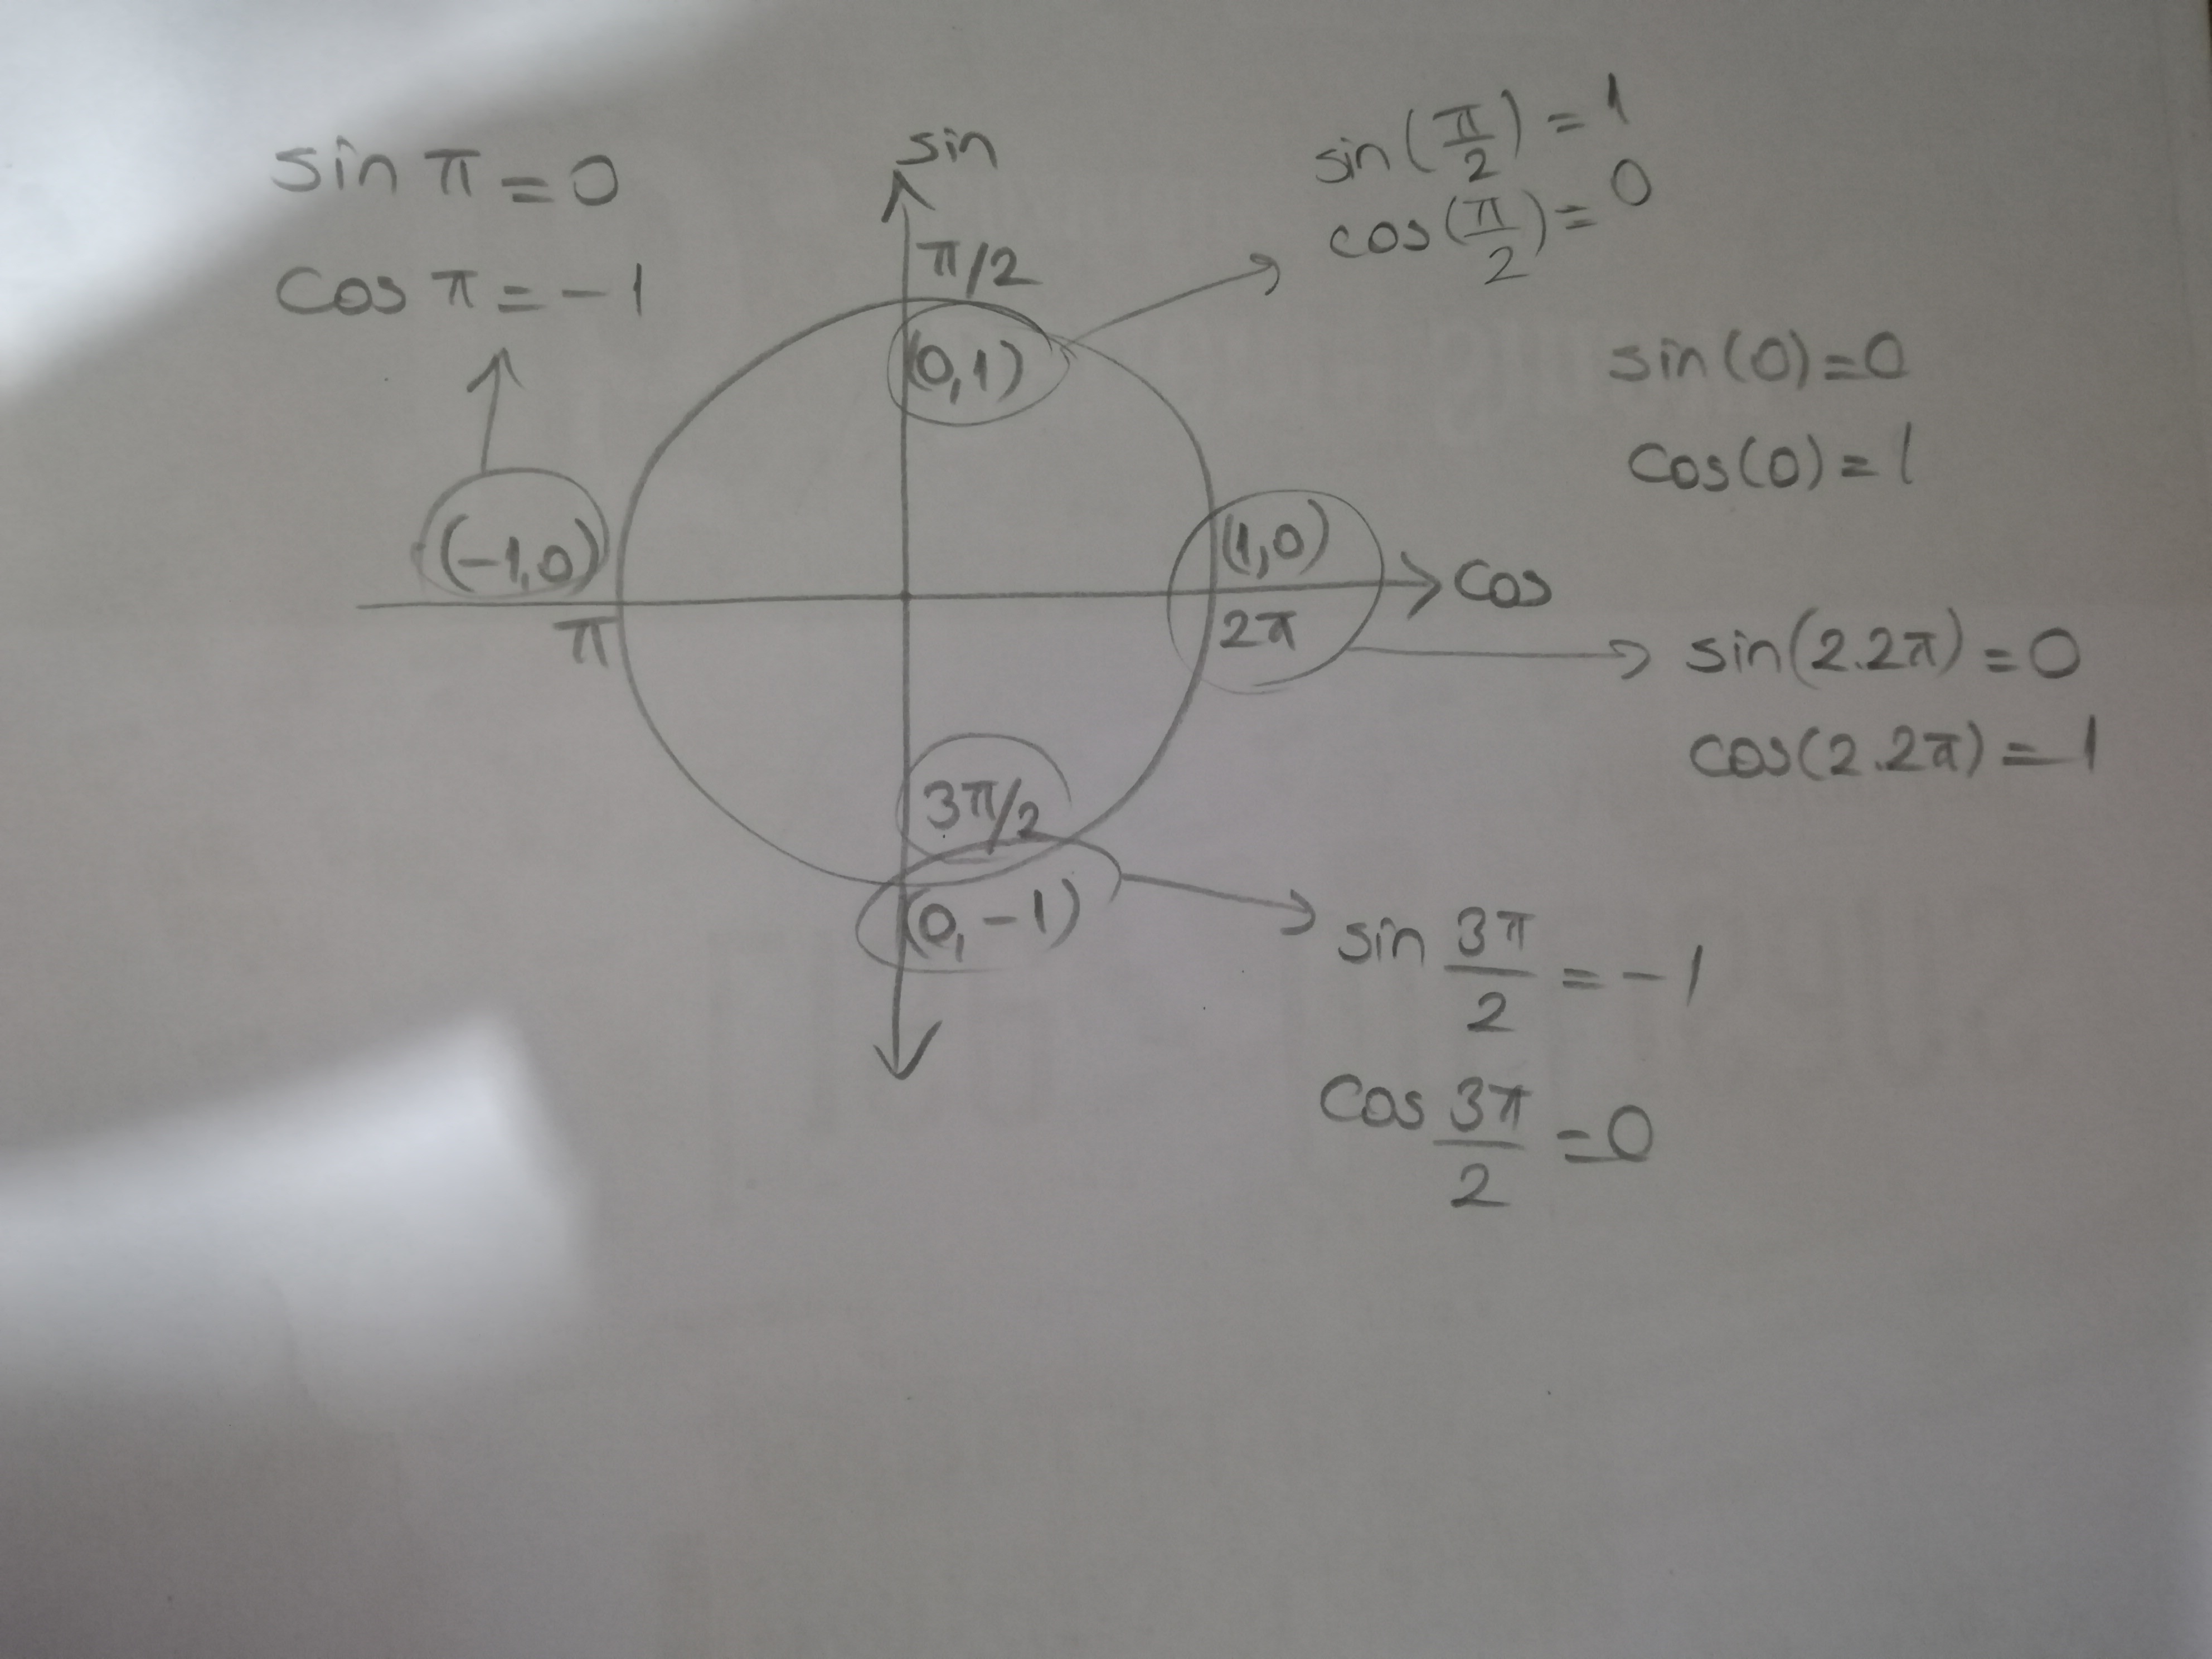 sin π = 0
cos π = -1
sin
sin(π/2) = 1
cos(π/2) = 0
π/2
(0,1)
sin(0)=0
cos(0)=1
(-1,0)
(1,0)
cos
π
2π
sin(2.2π) = 0
cos(2.2π) = 1
3π/2
(0,-1)
sin 3π/2 = -1
cos 3π/2 = 0